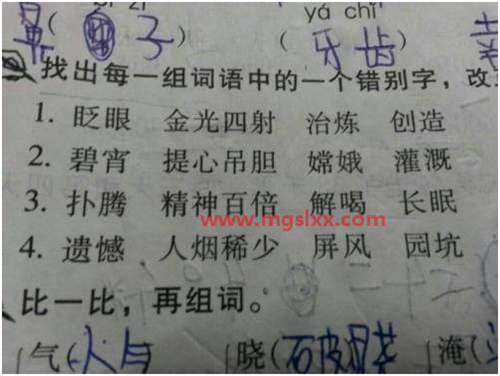 bí zi yá chǐ
鼻 子 ) ( 牙 齿 )
找出每一组词语中的一个错别字，改
1. 眨眼 金光四射 治炼 创造
2. 碧宵 提心吊胆 嫦娥 灌溉
3. 扑腾 精神百倍 解喝 长眠
www.mgslxx.com
4. 遗憾 人烟稀少 屏风 园坑
比一比，再组词。
气(人与 晓(石皮 淹(